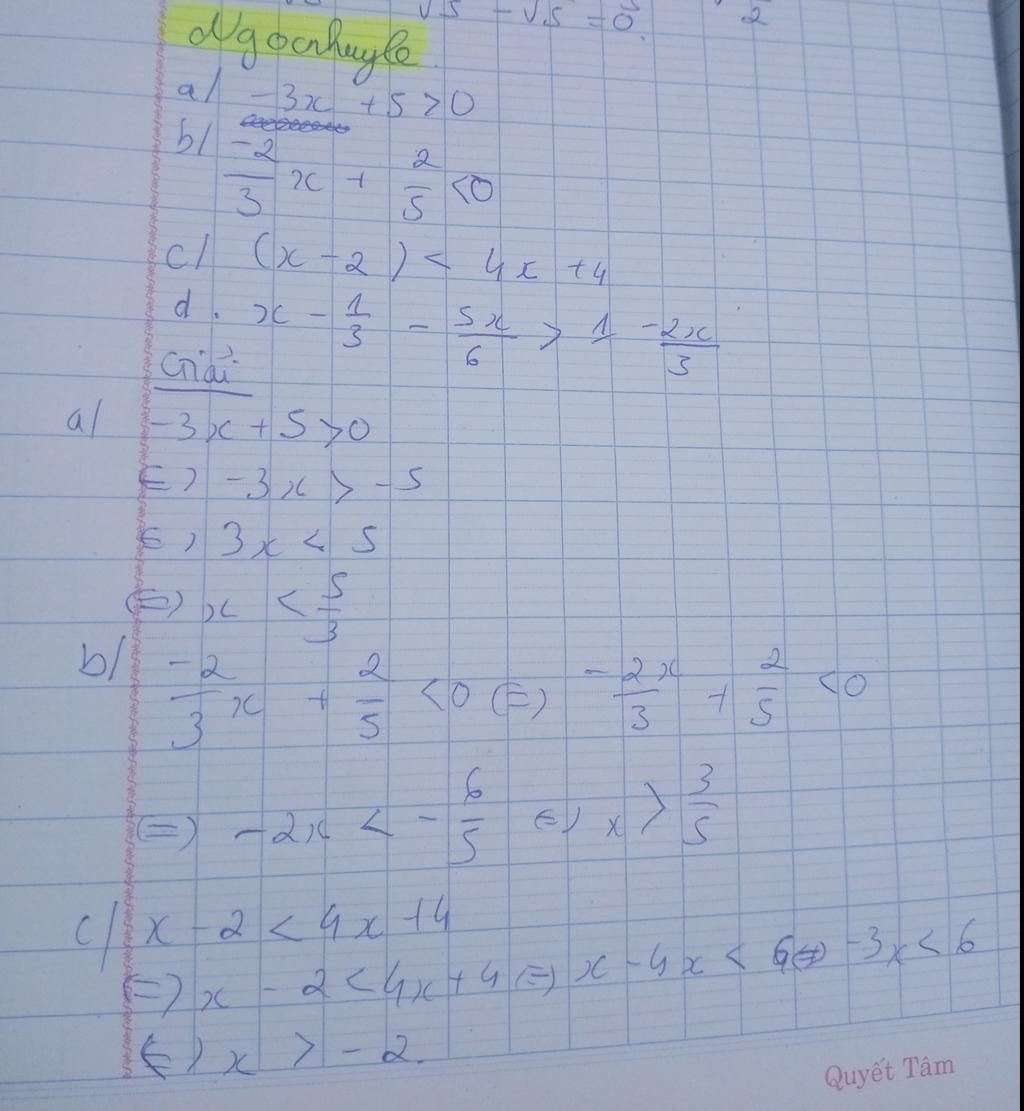 √5 - √5 = 0.
2
Ngocnhuyle
a/ -3x + 5 > 0
b/ -2/3 x + 2/5 < 0
c/ (x - 2) < 4x + 4
d. x - 1/3 - 5x/6 > 1 - 2x/3
Giải:
a/ -3x + 5 > 0
(=) -3x > -5
(=) 3x < 5
(=) x < 5/3
b/ -2/3 x + 2/5 < 0 (=) -2x/3 + 2/5 < 0
(=) -2x < -6/5 (=) x > 3/5
c/ x - 2 < 4x + 4
(=) x - 2 < 4x + 4 (=) x - 4x < 6 (=) -3x < 6
(=) x > -2.
Quyết Tâm